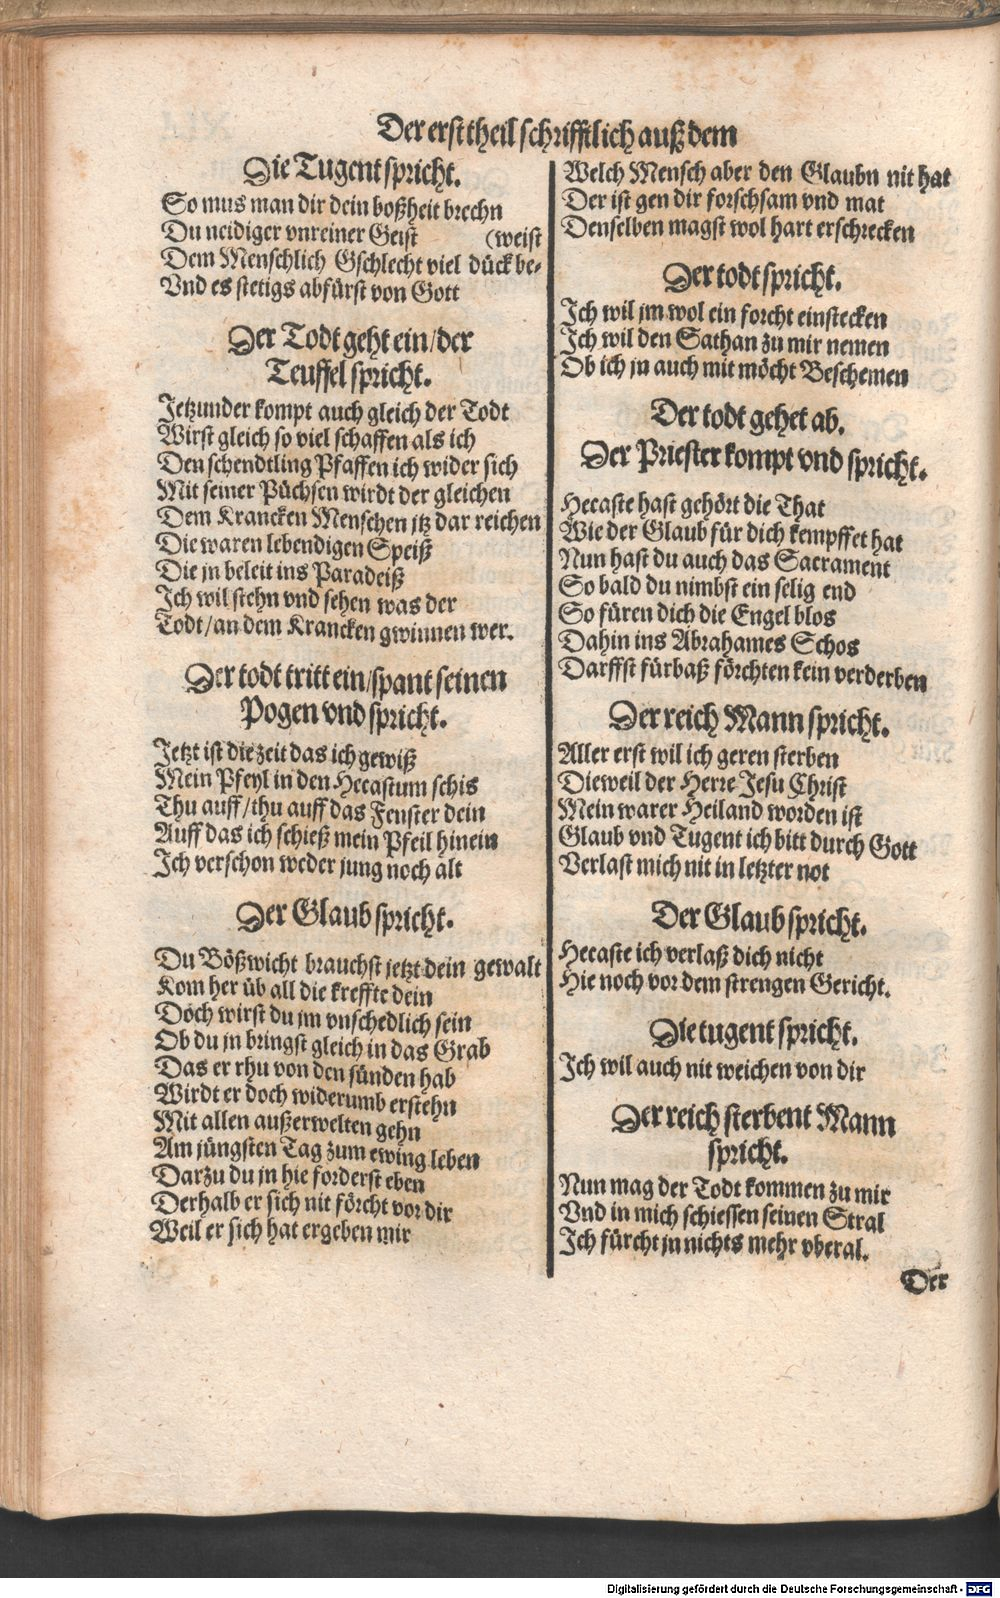 Der erst theil schrifftlich auß dem
Die Tugent spricht.
So mus man dir dein boßheit brechn
Du neidiger vnreiner Geist (weist
Dem Menschlich Gschlecht viel dück be-
Vnd es stetigs abfürst von Gott
Der Todt geht ein/der
Teuffel spricht.
Jetzunder kompt auch gleich der Todt
Wirst gleich so viel schaffen als ich
Den schendtling Pfaffen ich wider sich
Mit seiner Püchsen wirdt der gleichen
Dem Krancken Menschen jtz dar reichen
Die waren lebendigen Speiß
Die jn beleit ins Paradeiß
Ich wil stehn vnd sehen was der
Todt/an dem Krancken gwinnen wer.
Der todt tritt ein/spant seinen
Pogen vnd spricht.
Jetzt ist die zeit das ich gewiß
Mein Pfeyl in den Hecastum schis
Thu auff/thu auff das Fenster dein
Auff das ich schieß mein Pfeil hinein
Ich verschon weder jung noch alt
Der Glaub spricht.
Du Bößwicht brauchst jetzt dein gewalt
Kom her üb all die kreffte dein
Doch wirst du jm vnschedlich sein
Ob du jn bringst gleich in das Grab
Das er rhu von den sünden hab
Wirdt er doch widerumb erstehn
Mit allen außerwelten gehn
Am jüngsten Tag zum ewing leben
Darzu du jn hie forderst eben
Derhalb er sich nit förcht vor dir
Weil er sich hat ergeben mir
Welch Mensch aber den Glaubn nit hat
Der ist gen dir forschsam vnd mat
Denselben magst wol hart erschrecken
Der todt spricht.
Ich wil jm wol ein forcht einstecken
Ich wil den Sathan zu mir nemen
Ob ich jn auch mit möcht Beschemen
Der todt gehet ab.
Der Priester kompt vnd spricht.
Hecaste hast gehört die That
Wie der Glaub für dich kempffet hat
Nun hast du auch das Sacrament
So bald du nimbst ein selig end
So füren dich die Engel blos
Dahin ins Abrahames Schos
Darffst fürbaß förchten kein verderben
Der reich Mann spricht.
Aller erst wil ich geren sterben
Dieweil der Herre Jesu Christ
Mein warer Heiland worden ist
Glaub vnd Tugent ich bitt durch Gott
Verlast mich nit in letzter not
Der Glaub spricht.
Hecaste ich verlaß dich nicht
Hie noch vor dem strengen Gericht.
Die tugent spricht.
Ich wil auch nit weichen von dir
Der reich sterbent Mann
spricht.
Nun mag der Todt kommen zu mir
Vnd in mich schiessen seinen Stral
Ich fürcht jn nichts mehr vberal.
Der
Digitalisierung gefördert durch die Deutsche Forschungsgemeinschaft - DFG